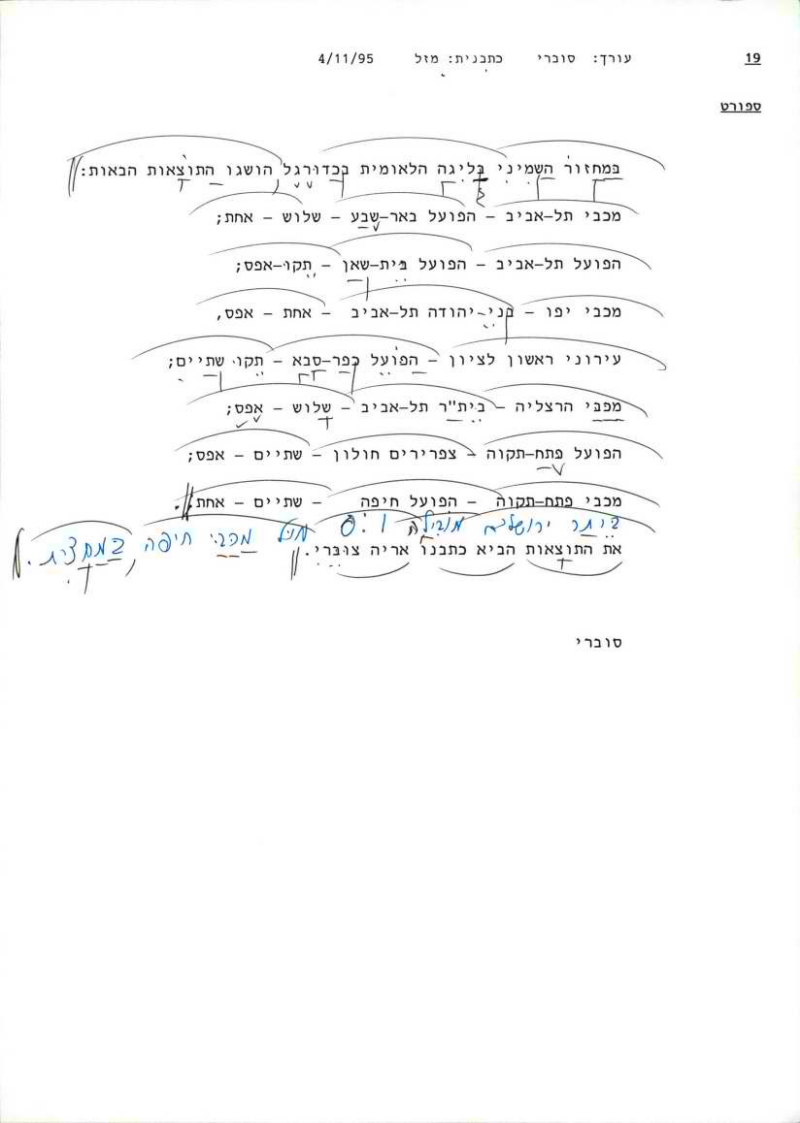 19 עורך: סוברי כתבנית: מזל 4/11/95
ספורט
במחזור השמיני בליגה הלאומית בכדורגל הושגו התוצאות הבאות:
מכבי תל-אביב – הפועל באר-שבע – שלוש – אחת;
הפועל תל-אביב – הפועל בית-שאן – תקו-אפס;
מכבי יפו – בני-יהודה תל-אביב – אחת – אפס,
עירוני ראשון לציון – הפועל כפר-סבא – תקו שתיים;
מכבי הרצליה – בית"ר תל-אביב – שלוש – אפס;
הפועל פתח-תקוה – צפרירים חולון – שתיים – אפס;
מכבי פתח-תקוה – הפועל חיפה – שתיים – אחת.
ביתר ירושלים מובילה 1:0 מול מכבי חיפה, במחצית.
את התוצאות הביא כתבנו אריה צוברי.
סוברי